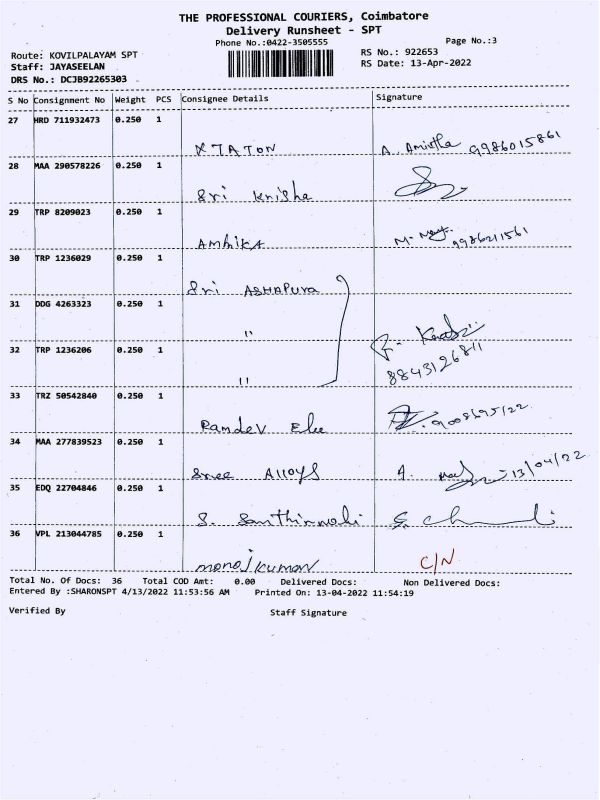 THE PROFESSIONAL COURIERS, Coimbatore
Delivery Runsheet - SPT
Phone No.:0422-3505555
Page No.:3
Route: KOVILPALAYAM SPT
RS No.: 922653
Staff: JAYASEELAN
RS Date: 13-Apr-2022
DRS No.: DCJB92265303
S No Consignment No Weight PCS Consignee Details Signature
27 HRD 711932473 0.250 1
A. Amirtha 9986015861
28 MAA 290578226 0.250 1
Sri Krisha
29 TRP 8209023 0.250 1
Ambika 9986211561
30 TRP 1236029 0.250 1
Sri ASHAPURA
31 DDG 4263323 0.250 1
"
32 TRP 1236206 0.250 1
" 8843126811
33 TRZ 50542840 0.250 1
Ramdev Ele
34 MAA 277839523 0.250 1
Sree Alloys 13/04/22
35 EDQ 22704846 0.250 1
S.
36 VPL 213044785 0.250 1
manojkumar C/N
Total No. Of Docs: 36 Total COD Amt: 0.00 Delivered Docs: Non Delivered Docs:
Entered By :SHARONSPT 4/13/2022 11:53:56 AM Printed On: 13-04-2022 11:54:19
Verified By Staff Signature